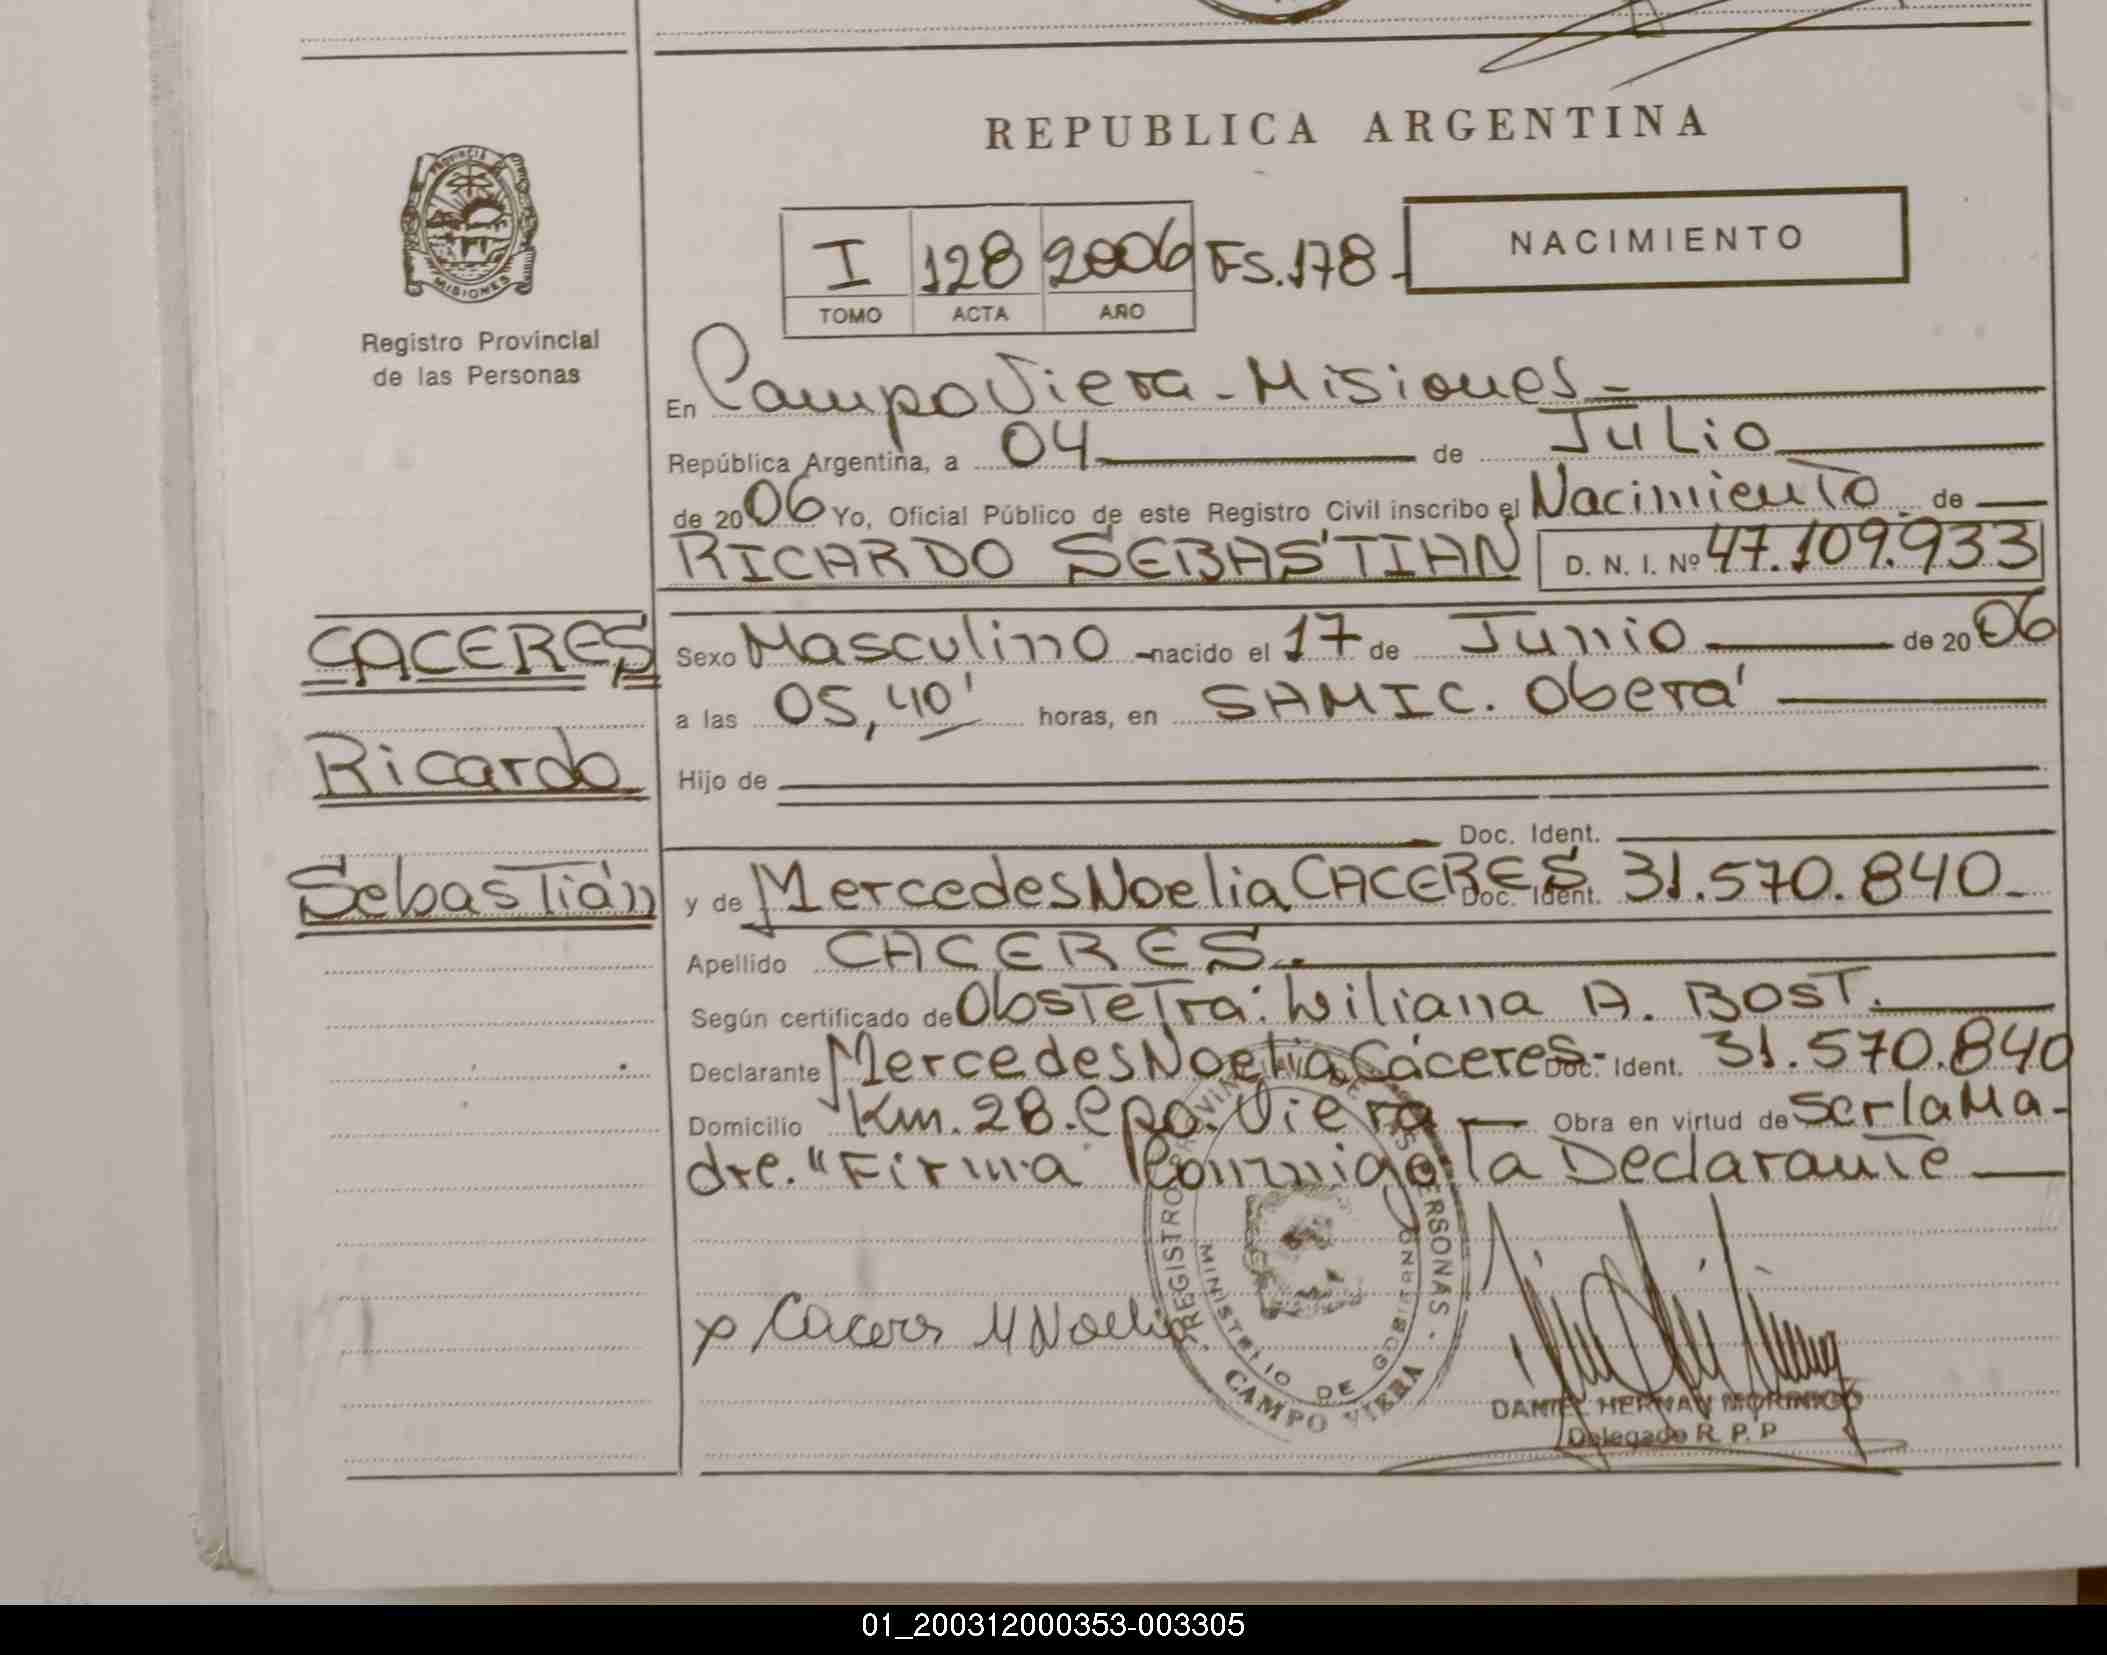 REPUBLICA ARGENTINA
PROVINCIA DE MISIONES
Registro Provincial
de las Personas
I 128 2006 Fs. 178.-
TOMO ACTA AÑO
NACIMIENTO
En Campo Viera - Misiones.-
República Argentina, a 04 de Julio
de 2006 Yo, Oficial Público de este Registro Civil inscribo el Nacimiento de
RICARDO SEBASTIAN D. N. I. Nº 47.109.933
CACERES
Ricardo
Sebastián
Sexo Masculino - nacido el 17 de Junio de 2006
a las 05,40' horas, en SAMIC. Oberá
Hijo de
Doc. Ident.
y de Mercedes Noelia CACERES Doc. Ident. 31.570.840-
Apellido CACERES.
Según certificado de Obstetra: Wiliana A. BOST.
Declarante Mercedes Noelia Cáceres- Doc. Ident. 31.570.840
Domicilio Km. 28. Cpo. Viera Obra en virtud de ser la Ma-
dre. "Firma Conmigo la Declarante
x Caceres M Noelia
REGISTRO PROVINCIAL DE LAS PERSONAS
MINISTERIO DE GOBIERNO
CAMPO VIERA
DANIEL HERNAN MORINIGO
Delegado R. P. P
01_200312000353-003305